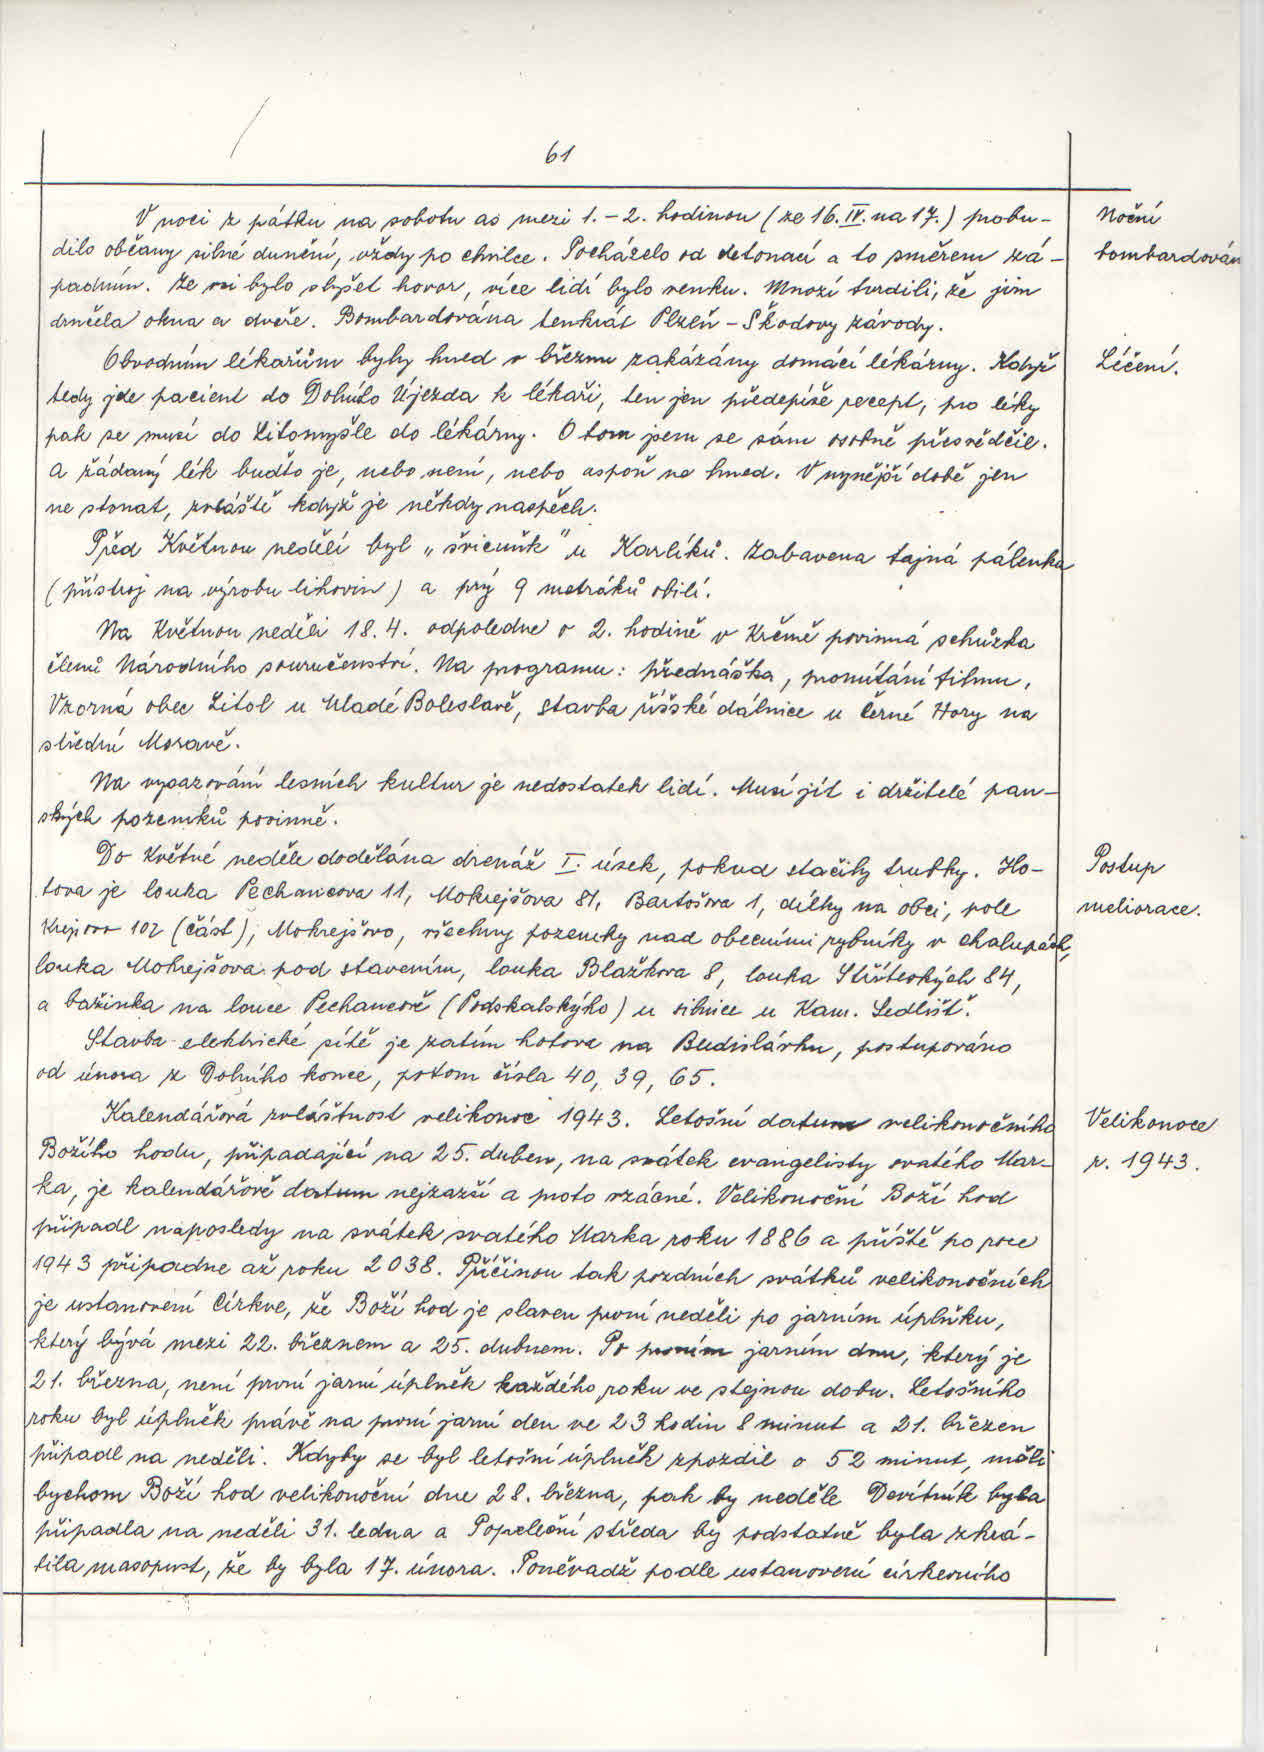 61
V noci z pátku na sobotu as mezi 1.-2. hodinou (ze 16.IV. na 17.) probu-
Noční
dilo občany silné dunění, vždy po chvilce. Pocházelo od detonací a to směrem zá-
bombardován
padním. Ze vsi bylo slyšet hovor, více lidí bylo venku. Mnozí tvrdili, že jim
drnčela okna a dveře. Bombardována tenkrát Plzeň - Škodovy závody.
Obvodním lékařům byly hned v březnu zakázány domácí lékárny. Když
Léčení.
tedy jde pacient do Dolního Újezda k lékaři, ten jen předepíše recept, pro léky
pak se musí do Litomyšle do lékárny. O tom jsem se sám osobně přesvědčil.
A žádaný lék buďto je, nebo není, nebo aspoň ne hned. V nynější době jen
ne stonat, zvláště když je někdy naspěch.
Před Květnou nedělí byl „švicuňk" u Karlíků. Zabavena tajná pálenka
(přístroj na výrobu lihovin) a prý 9 metráků obilí.
Na Květnou neděli 18.4. odpoledne o 2. hodině v Krčmě povinná schůzka
členů Národního souručenství. Na programu: přednáška, promítání filmu,
Vzorná obec Litol u Mladé Boleslavě, stavba říšské dálnice u Černé Hory na
střední Moravě.
Na vysazování lesních kultur je nedostatek lidí. Musí jít i držitelé pan-
ských pozemků povinně.
Do Květné neděle dodělána drenáž I. úsek, pokud stačily trubky. Ho-
Postup
tova je louka Pechancova 11, Mokrejšova 81, Bartošova 1, dílky na obci, pole
meliorace.
Krejsovo 102 (část), Mokrejšovo, všechny pozemky nad obecními rybníky v chalupách,
louka Mokrejšova pod stavením, louka Blažkova 8, louka Stříteských 84,
a bažinka na louce Pechancově (Podskalského) u silnice u Kam. Sedlišť.
Stavba elektrické sítě je zatím hotova na Budislávku, postupováno
od února z Dolního konce, potom čísla 40, 39, 65.
Kalendářová zvláštnost velikonoc 1943. Letošní datum velikonočního
Velikonoce
Božího hodu, připadající na 25. duben, na svátek evangelisty svatého Mar-
r. 1943.
ka, je kalendářově datum nejzazší a proto vzácné. Velikonoční Boží hod
připadl naposledy na svátek svatého Marka roku 1886 a příště po roce
1943 připadne až roku 2038. Příčinou tak pozdních svátků velikonočních
je ustanovení Církve, že Boží hod je slaven první neděli po jarním úplňku,
který bývá mezi 22. březnem a 25. dubnem. Po prvním jarním dnu, který je
21. března, není první jarní úplněk každého roku ve stejnou dobu. Letošního
roku byl úplněk právě na první jarní den ve 23 hodin 8 minut a 21. březen
připadl na neděli. Kdyby se byl letošní úplněk zpozdil o 52 minut, měli
bychom Boží hod velikonoční dne 28. března, pak by neděle Devítník byla
připadla na neděli 31. ledna a Popeleční středa by podstatně byla zkrá-
tila masopust, že by byla 17. února. Poněvadž podle ustanovení církevního